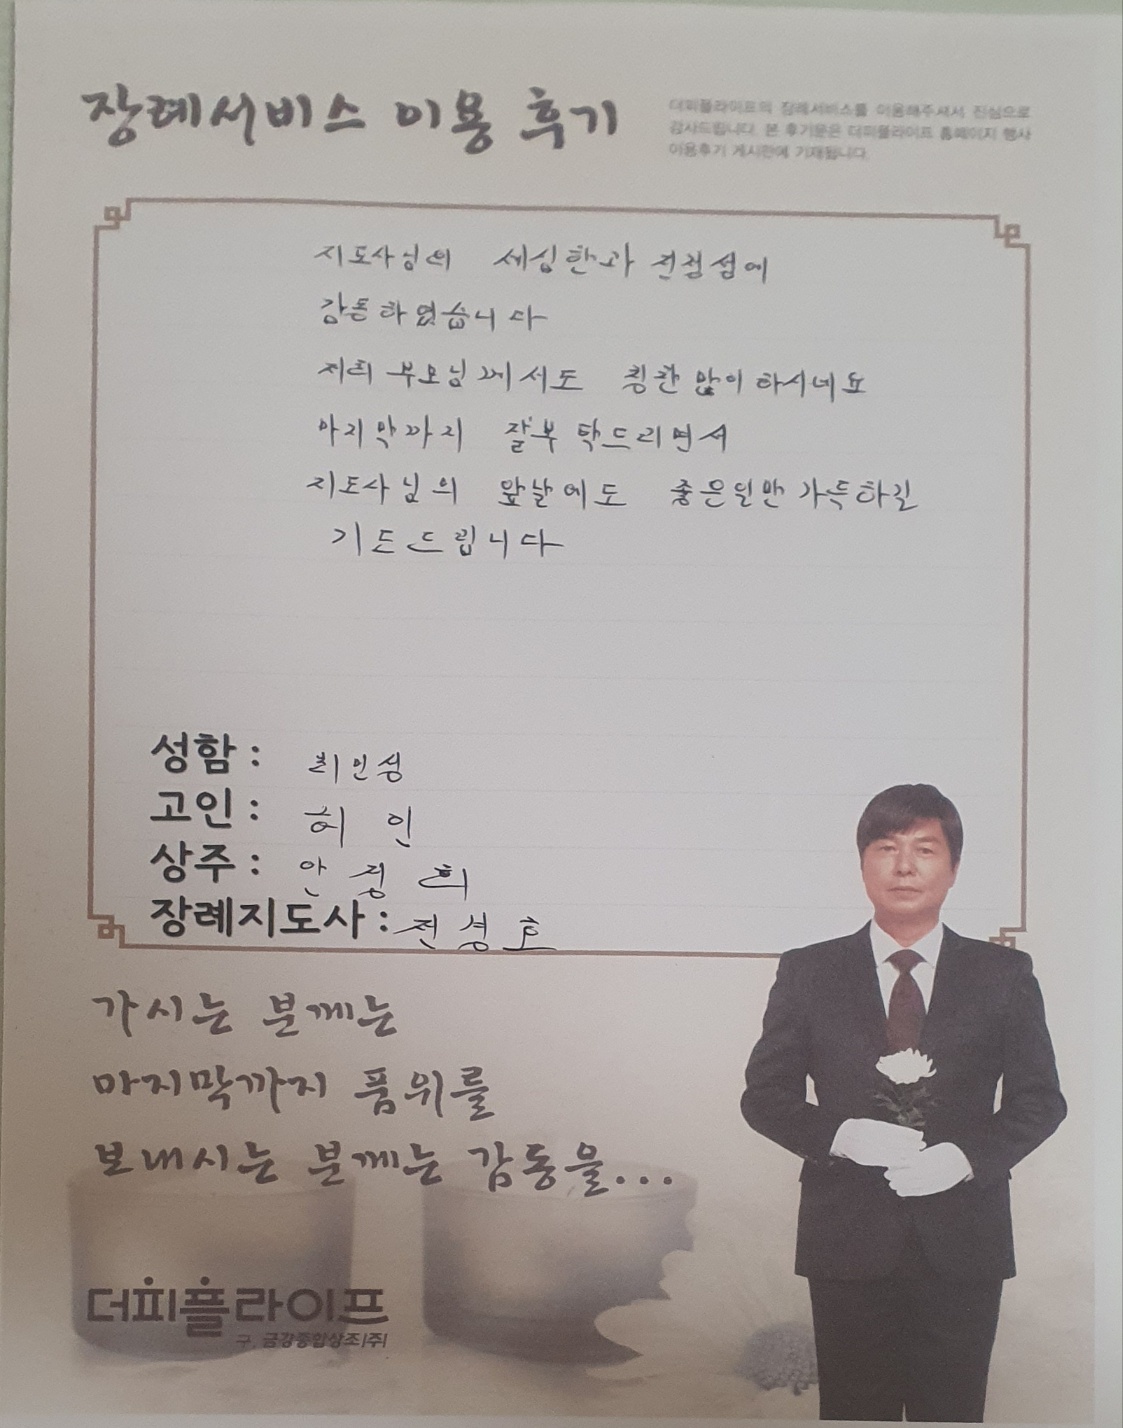 장례서비스 이용 후기
더피플라이프의 장례서비스를 이용해주셔서 진심으로
감사드립니다. 본 후기문은 더피플라이프 홈페이지 행사
이용후기 게시판에 기재됩니다.
지도사님의 세심한과 친절성에
감동하였습니다
저희 부모님께서도 칭찬 많이 하시네요
마지막까지 잘부탁드리면서
지도사님의 앞날에도 좋은일만 가득하길
기도드립니다
성함 :
고인 : 허 인
상주 : 안 정 희
장례지도사 : 전 성 호
가시는 분께는
마지막까지 품위를
보내시는 분께는 감동을...
더피플라이프
구. 금강종합상조(주)